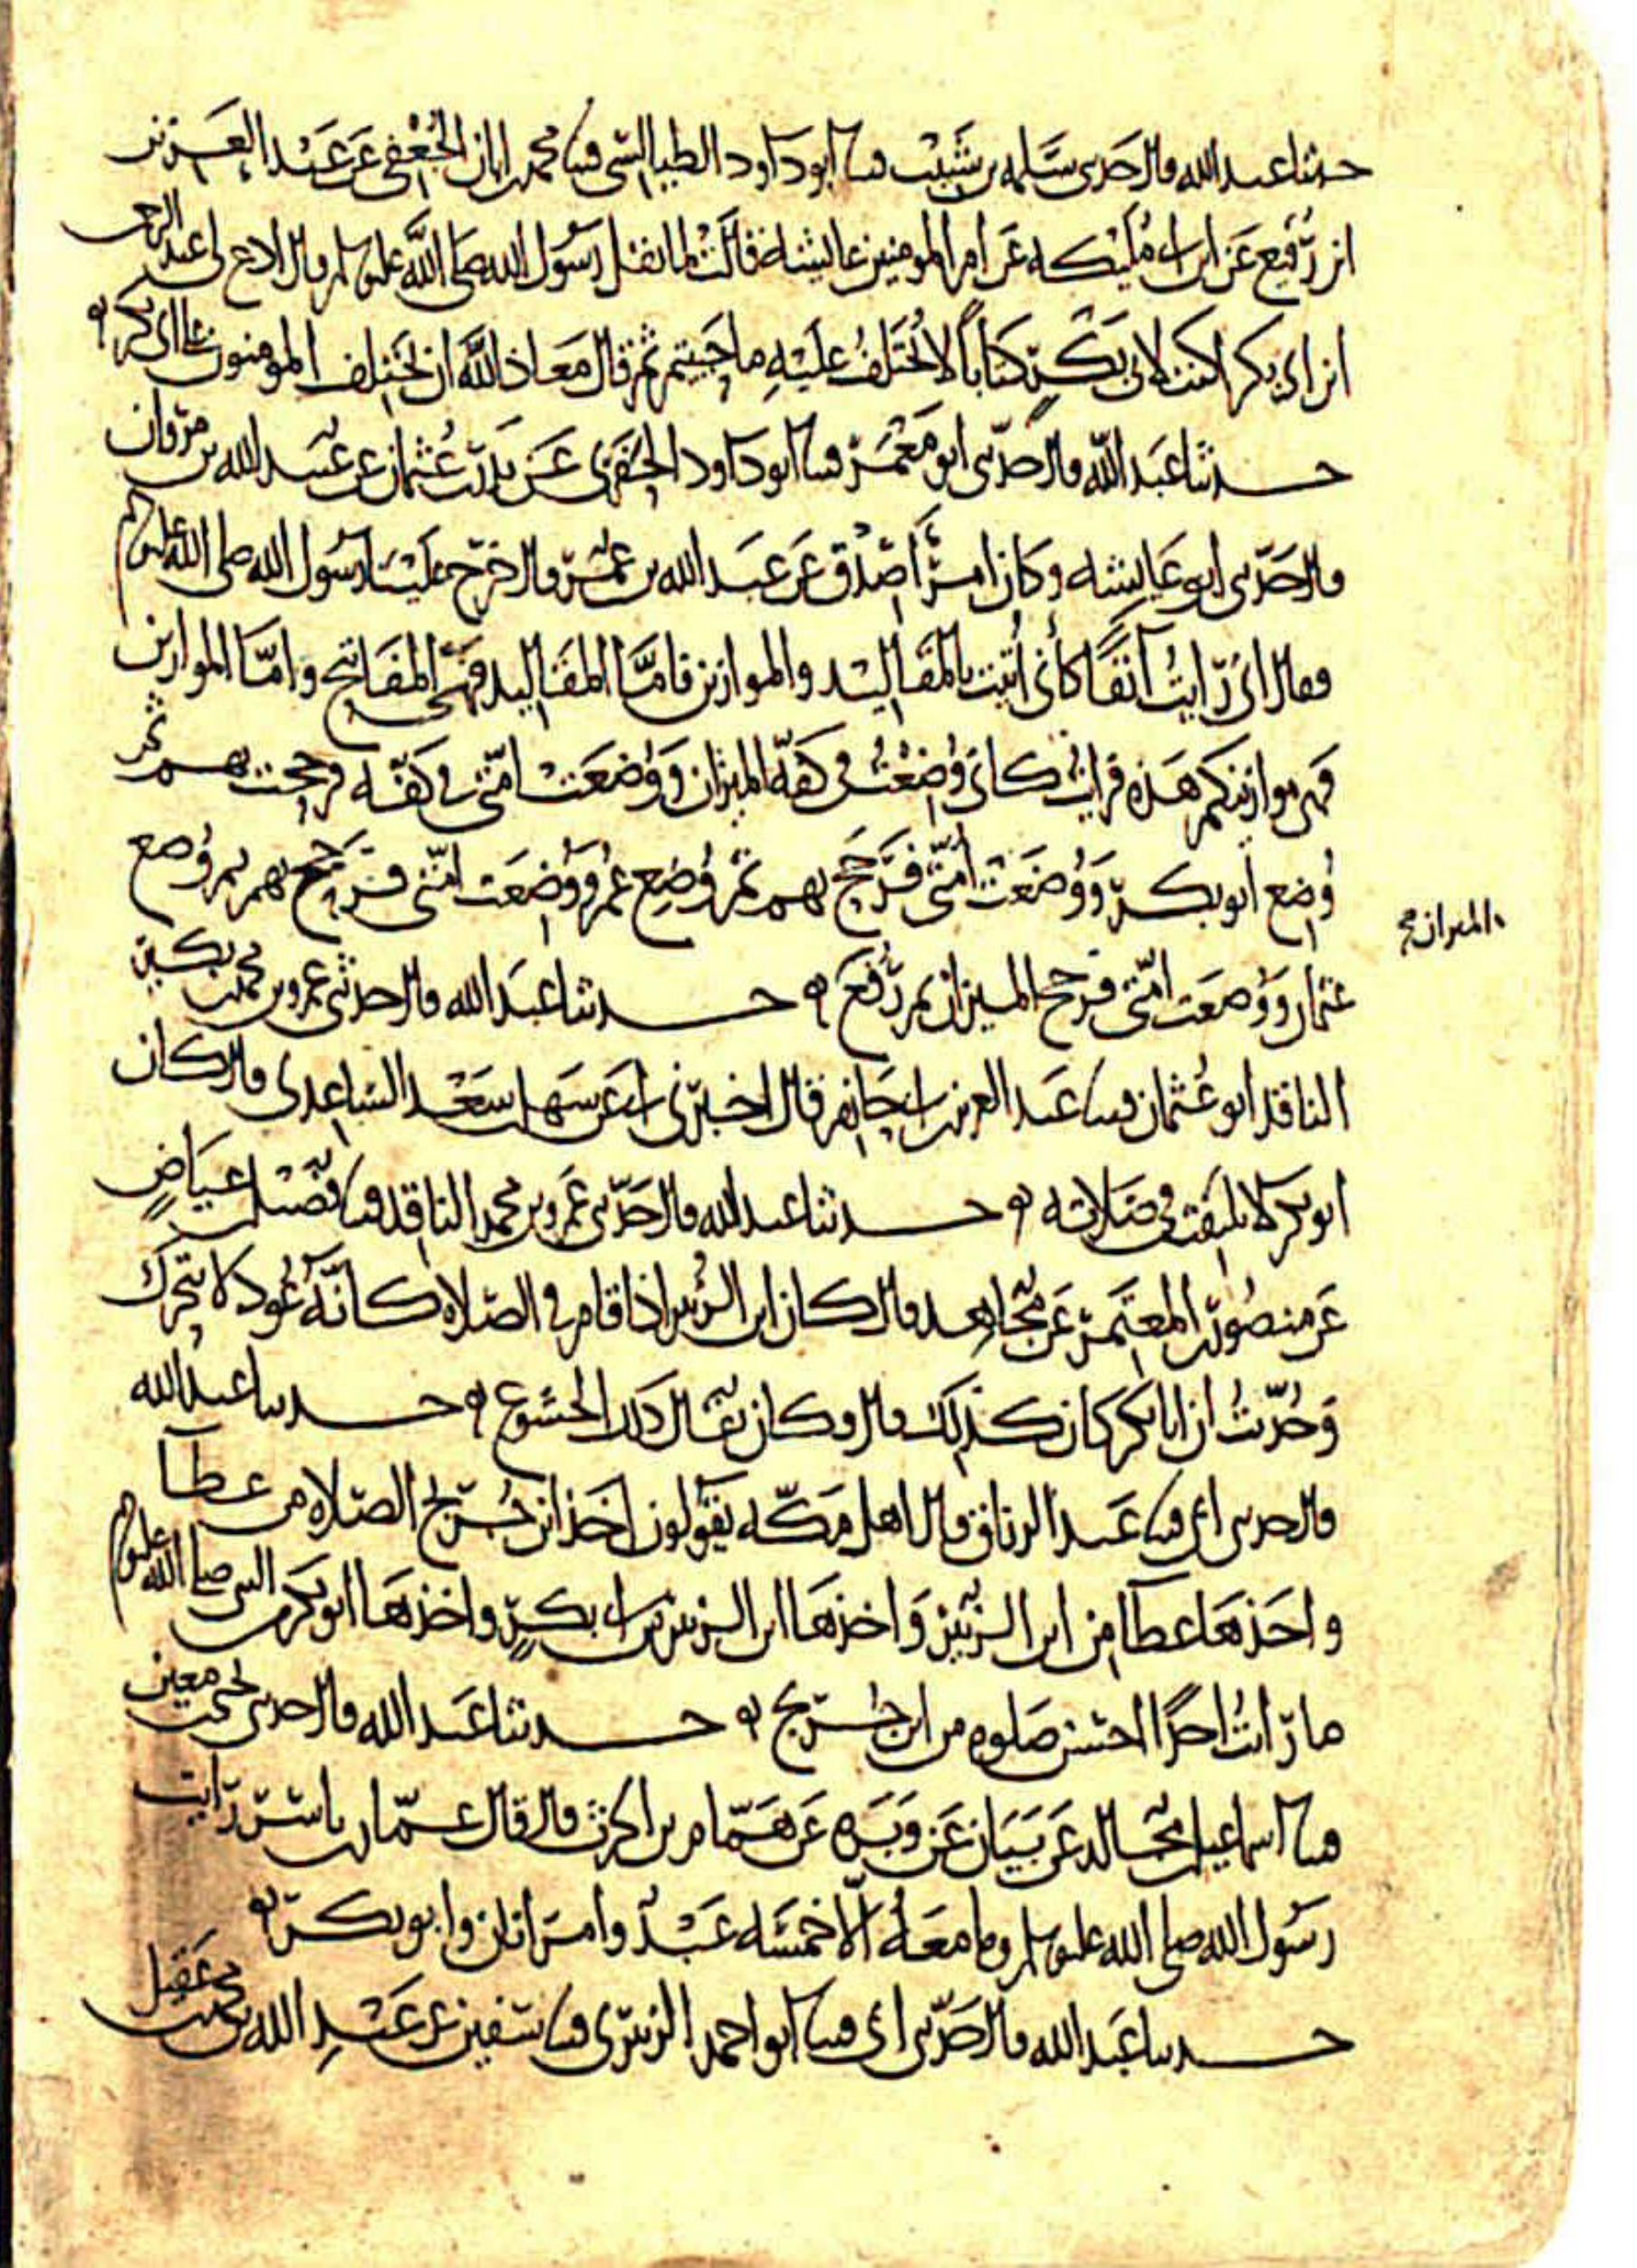 حدثنا عبد الله قال حدثني سلمه بن شبيب قثنا ابو داود الطيالسي قثنا محمد بن ابان الجعفي عن عبد العزيز
بن رفيع عن ابن ابي مليكه عن ام المومنين عايشه قالت لما ثقل رسول الله صلى الله عليه وسلم قال ادعي لي عبد الرحمن
بن ابي بكر اكتب لابي بكر كتابا لا يختلف عليه ما حييتم ثم قال معاذ الله ان يختلف المومنون على ابي بكر
حدثنا عبد الله قال حدثني ابو معمر قثنا ابو داود الحفري عن بدر بن عثمان عن عبيد الله بن مروان
قال حدثني ابو عايشه وكان امرأ صدق عن عبد الله بن عمر قال خرج علينا رسول الله صلى الله عليه وسلم
فقال اني رايت آنفا كأني أتيت بالمقاليد والموازين فاما المقاليد فهي المفاتيح واما الموازين
فهي موازينكم هذه فرايت كاني وضعت في كفة الميزان ووضعت امتي في كفه فرجحت بهم ثم
وضع ابو بكر ووضعت امتي فرجح بهم ثم وضع عمر ووضعت امتي فرجح بهم ثم وضع
الميزان
عثمان ووضعت امتي فرجح الميزان ثم رفع حدثنا عبد الله قال حدثني عمرو بن محمد بن بكير
الناقد ابو عثمان قثنا عبد العزيز بن ابي حازم قال اخبرني ابي عن سهل بن سعد الساعدي قال كان
ابو بكر لا يلتفت في صلاته حدثنا عبد الله قال حدثني عمرو بن محمد الناقد قثنا فضيل بن عياض
عن منصور بن المعتمر عن مجاهد قال كان ابن الزبير اذا قام في الصلاه كانه عود لا يتحرك
وحدثت ان ابا بكر كان كذلك قال وكان يقال ذلك الخشوع حدثنا عبد الله
قال حدثني ابي قثنا عبد الرزاق قال اهل مكه يقولون اخذ ابن جريج الصلاه من عطآ
واخذها عطا من ابن الزبير واخذها ابن الزبير من ابي بكر واخذها ابو بكر من النبي صلى الله عليه وسلم
ما رايت احدا احسن صلوه من ابن جريج حدثنا عبد الله قال حدثني يحيى بن معين
قثنا اسماعيل بن مجالد عن بيان عن وبره عن همام بن الحرث قال قال عمار بن ياسر رايت
رسول الله صلى الله عليه وسلم وما معه الا خمسه عبد وامراتان وابو بكر
حدثنا عبد الله قال حدثني ابي قثنا ابو احمد الزبيري قثنا سفين عن عبد الله بن محمد بن عقيل